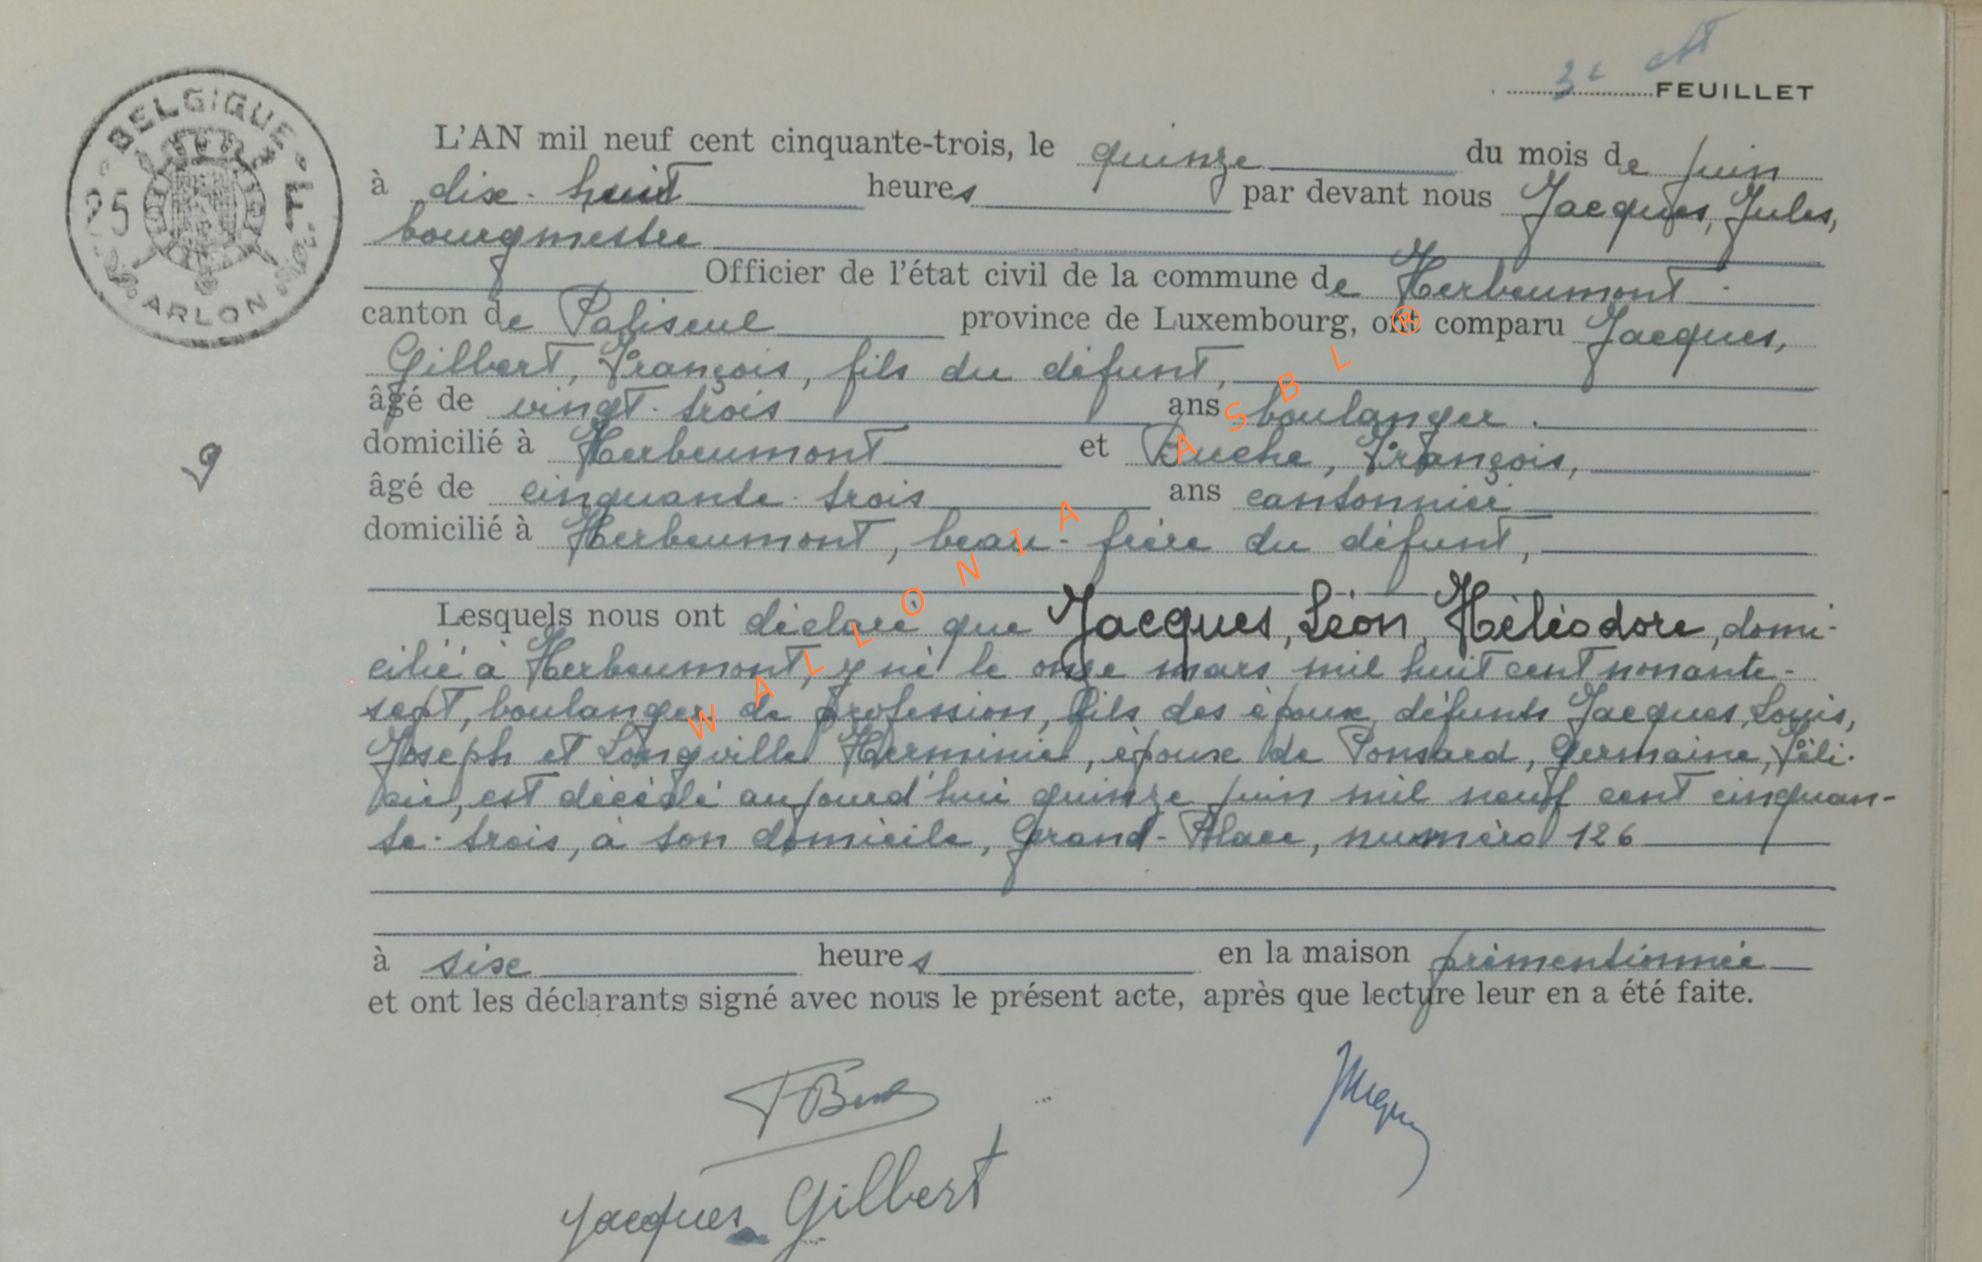 3e
FEUILLET
BELGIQUE
25 F
ARLON
L'AN mil neuf cent cinquante-trois, le quinze du mois de juin
à dix-huit heures par devant nous Jacques, Jules,
bourgmestre
Officier de l'état civil de la commune de Herbeumont
canton de Paliseul province de Luxembourg, ont comparu Jacques,
Gilbert, François, fils du défunt,
âgé de vingt-trois ans boulanger.
domicilié à Herbeumont et Buche, François,
âgé de cinquante-trois ans cantonnier
domicilié à Herbeumont, beau-frère du défunt,
Lesquels nous ont déclaré que Jacques, Léon, Héliodore, domi-
cilié à Herbeumont, y né le onze mars mil huit cent nonante-
sept, boulanger de profession, fils des époux défunts Jacques, Louis,
Joseph et Longville Herminie, époux de Ponsard, Germaine, Féli-
cie, est décédé aujourd'hui quinze juin mil neuf cent cinquan-
te-trois, à son domicile, Grand-Place, numéro 126
à six heures en la maison prémentionnée
et ont les déclarants signé avec nous le présent acte, après que lecture leur en a été faite.
WALLONIA ASBL ®
Jacques Gilbert